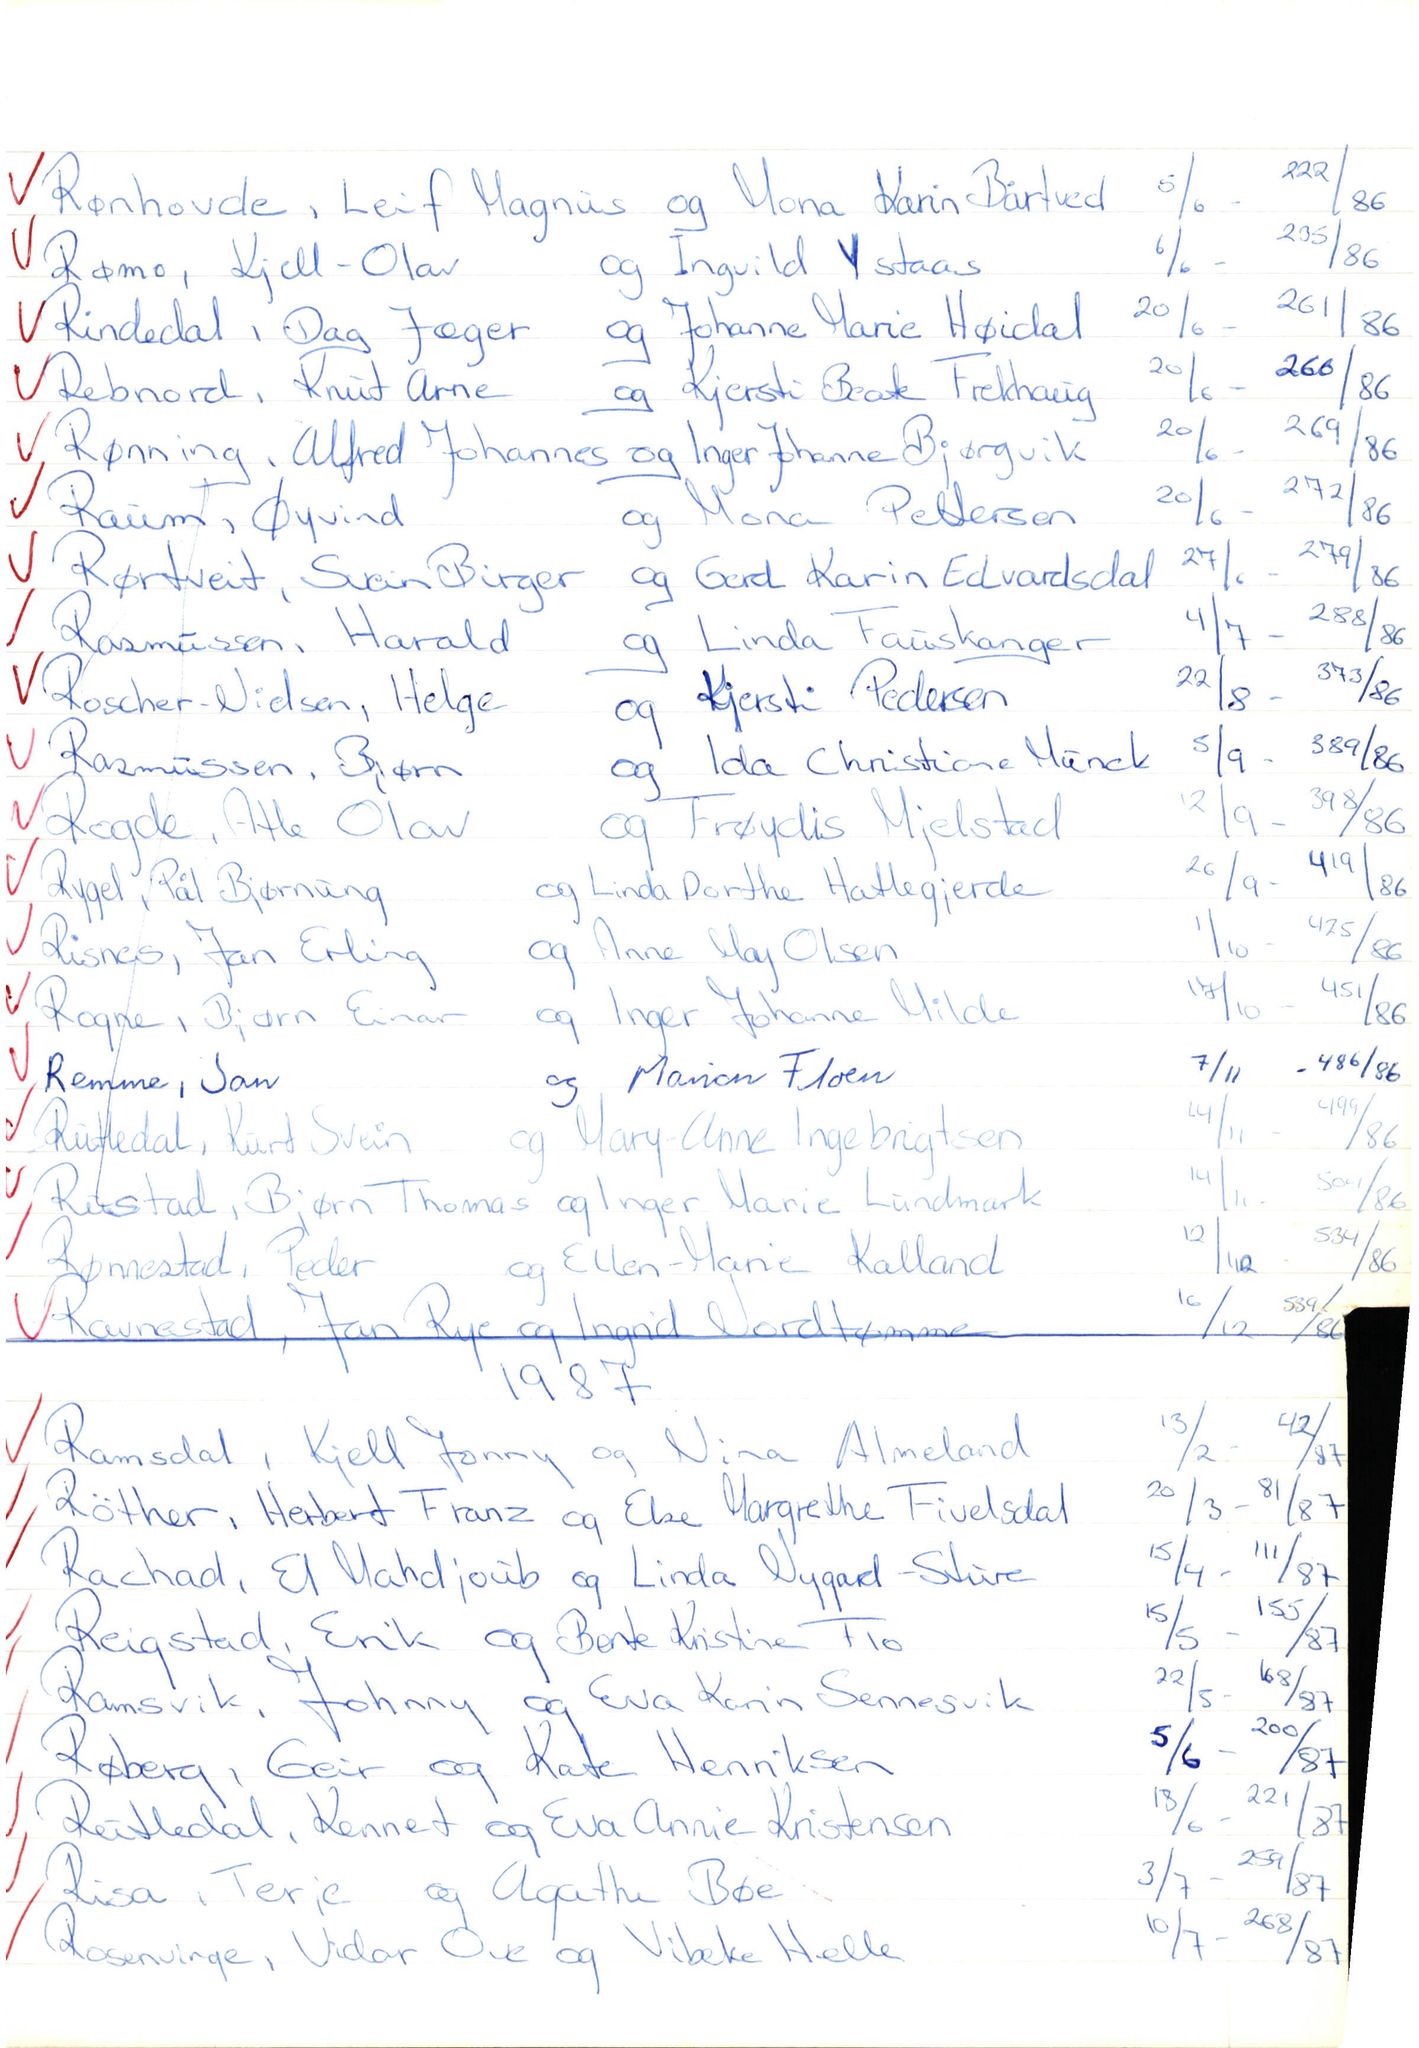 Rønhovde, Leif Magnus og Mona Karin Bårtved 5/6 - 222/86
Rømo, Kjell-Olav og Ingvild Ystaas 6/6 - 235/86
Rindedal, Dag Jæger og Johanne Marie Høidal 20/6 - 261/86
Rebnord, Knut Arne og Kjersti Beate Frekhaug 20/6 - 266/86
Rønning, Alfred Johannes og Inger Johanne Bjørgvik 20/6 - 269/86
Raum, Øyvind og Mona Pettersen 20/6 - 272/86
Rørtveit, Svein Birger og Gerd Karin Edvardsdal 27/6 - 279/86
Rasmussen, Harald og Linda Fauskanger 4/7 - 288/86
Roscher-Nielsen, Helge og Kjersti Pedersen 22/8 - 373/86
Rasmussen, Bjørn og Ida Christiane Munck 5/9 - 389/86
Rogde, Atle Olav og Frøydis Mjelstad 12/9 - 398/86
Rygel, Pål Bjørnung og Linda Dorthe Hatlegjerde 26/9 - 419/86
Risnes, Jan Erling og Anne May Olsen 1/10 - 425/86
Rogne, Bjørn Einar og Inger Johanne Milde 17/10 - 451/86
Remme, Jan og Marion Floen 7/11 - 486/86
Rutledal, Kurt Svein og Mary-Anne Ingebrigtsen 14/11 - 499/86
Rustad, Bjørn Thomas og Inger Marie Lundmark 14/11 - 504/86
Rønnestad, Peder og Ellen-Marie Kalland 12/12 - 534/86
Ravnestad, Jan Rye og Ingrid Nordtømme 16/12 539/86
1987
Ramsdal, Kjell Jonny og Nina Almeland 13/2 - 42/87
Röther, Herbert Franz og Else Margrethe Fivelsdal 20/3 - 81/87
Rachad, El Mahdjoub og Linda Nygard-Sture 15/4 - 111/87
Reigstad, Erik og Bente Kristine Flo 15/5 - 155/87
Ramsvik, Johnny og Eva Karin Sennesvik 22/5 - 168/87
Røberg, Geir og Kate Henriksen 5/6 - 200/87
Rutledal, Kennet og Eva Annie Kristensen 18/6 - 221/87
Risa, Terje og Agathe Bøe 3/7 - 259/87
Rosenvinge, Vidar Ove og Vibeke Helle 10/7 - 268/87